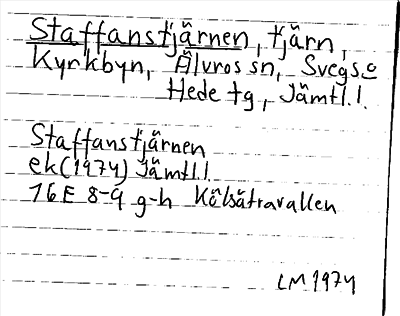 Staffanstjärnen, tjärn,
Kyrkbyn, Älvros sn, Svegs o
Hede tg, Jämtl.l.
Staffanstjärnen
ek(1974) Jämtl.l
16E 8-9 g-h Kölsätravallen
LM 1974